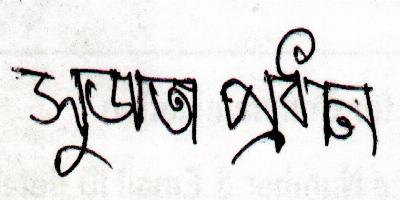 সুজাত প্রধান